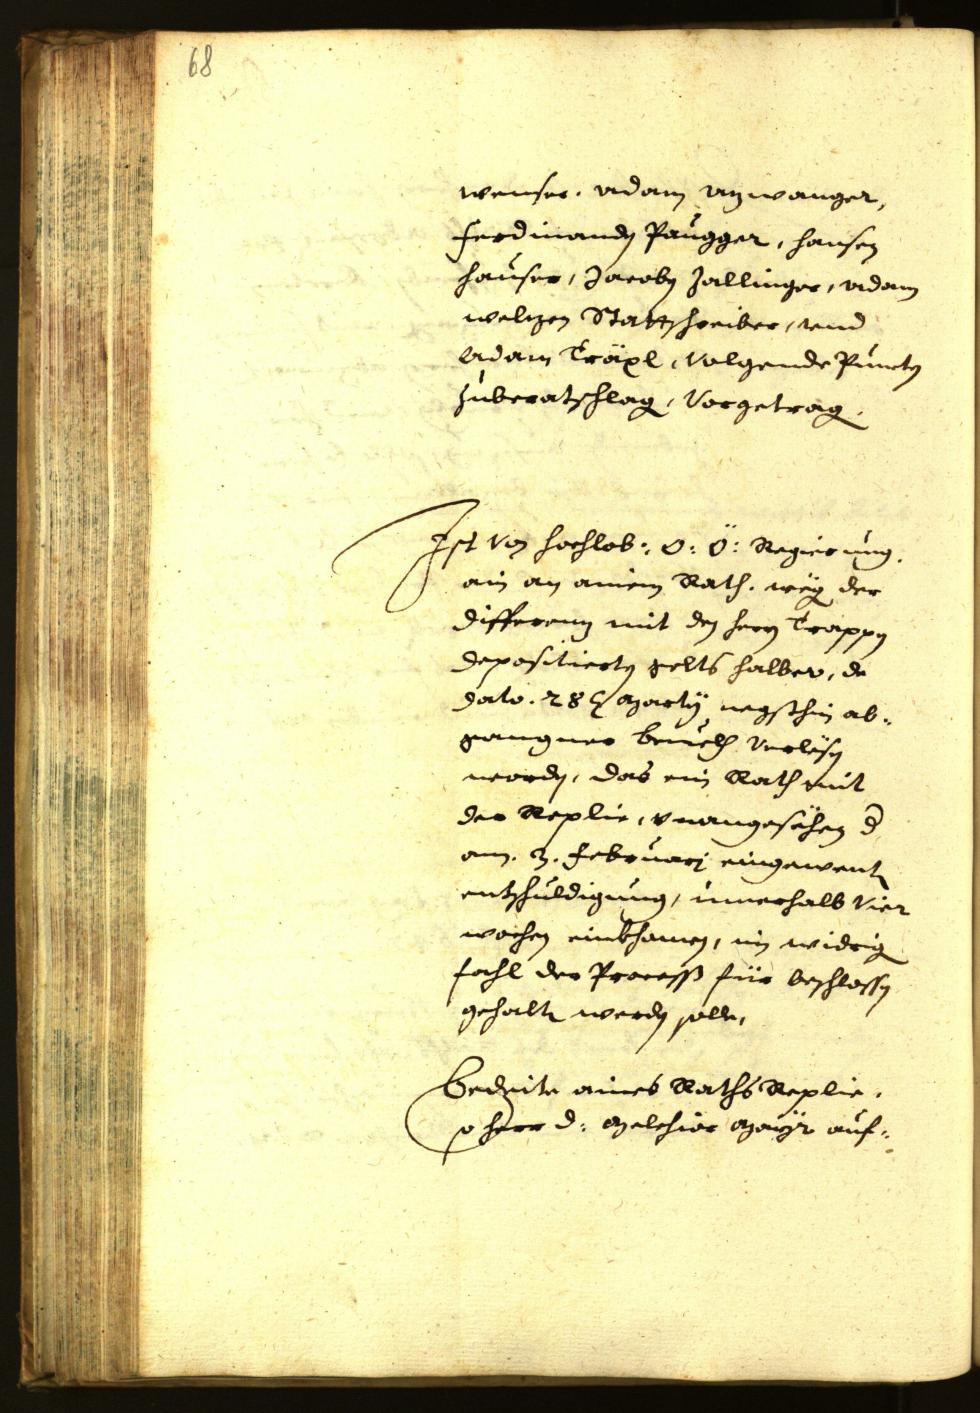 68
wenser. Adam Anwanger,
Ferdinanden Paugger, Hansen
Hauser, Jacoben Zallinger, Adam
Welzen Stattschreiber, vnd
Adam Träxl, Volgende Puncten
Zuberatschlag, Vorgetrag.
Ist Von hochlob: O: Ö: Regierung,
ain an ainem Rath. weg der
differenz mit den herrn Trappn
depositierten gelts halber, de
dato. 28 Marty negsthin ab-
gangner beuelch Verlesen
worden, das ein Rath mit
der Replic, vnangesehen d
am. 3. Februarj eingewent
entschuldigung, innerhalb Vier
wochen einkhomen, im widrig
fahl der Process für beschlossn
gehalten werden solle,
aines Raths Replic.
so herr D: Melchior Mayr auf-